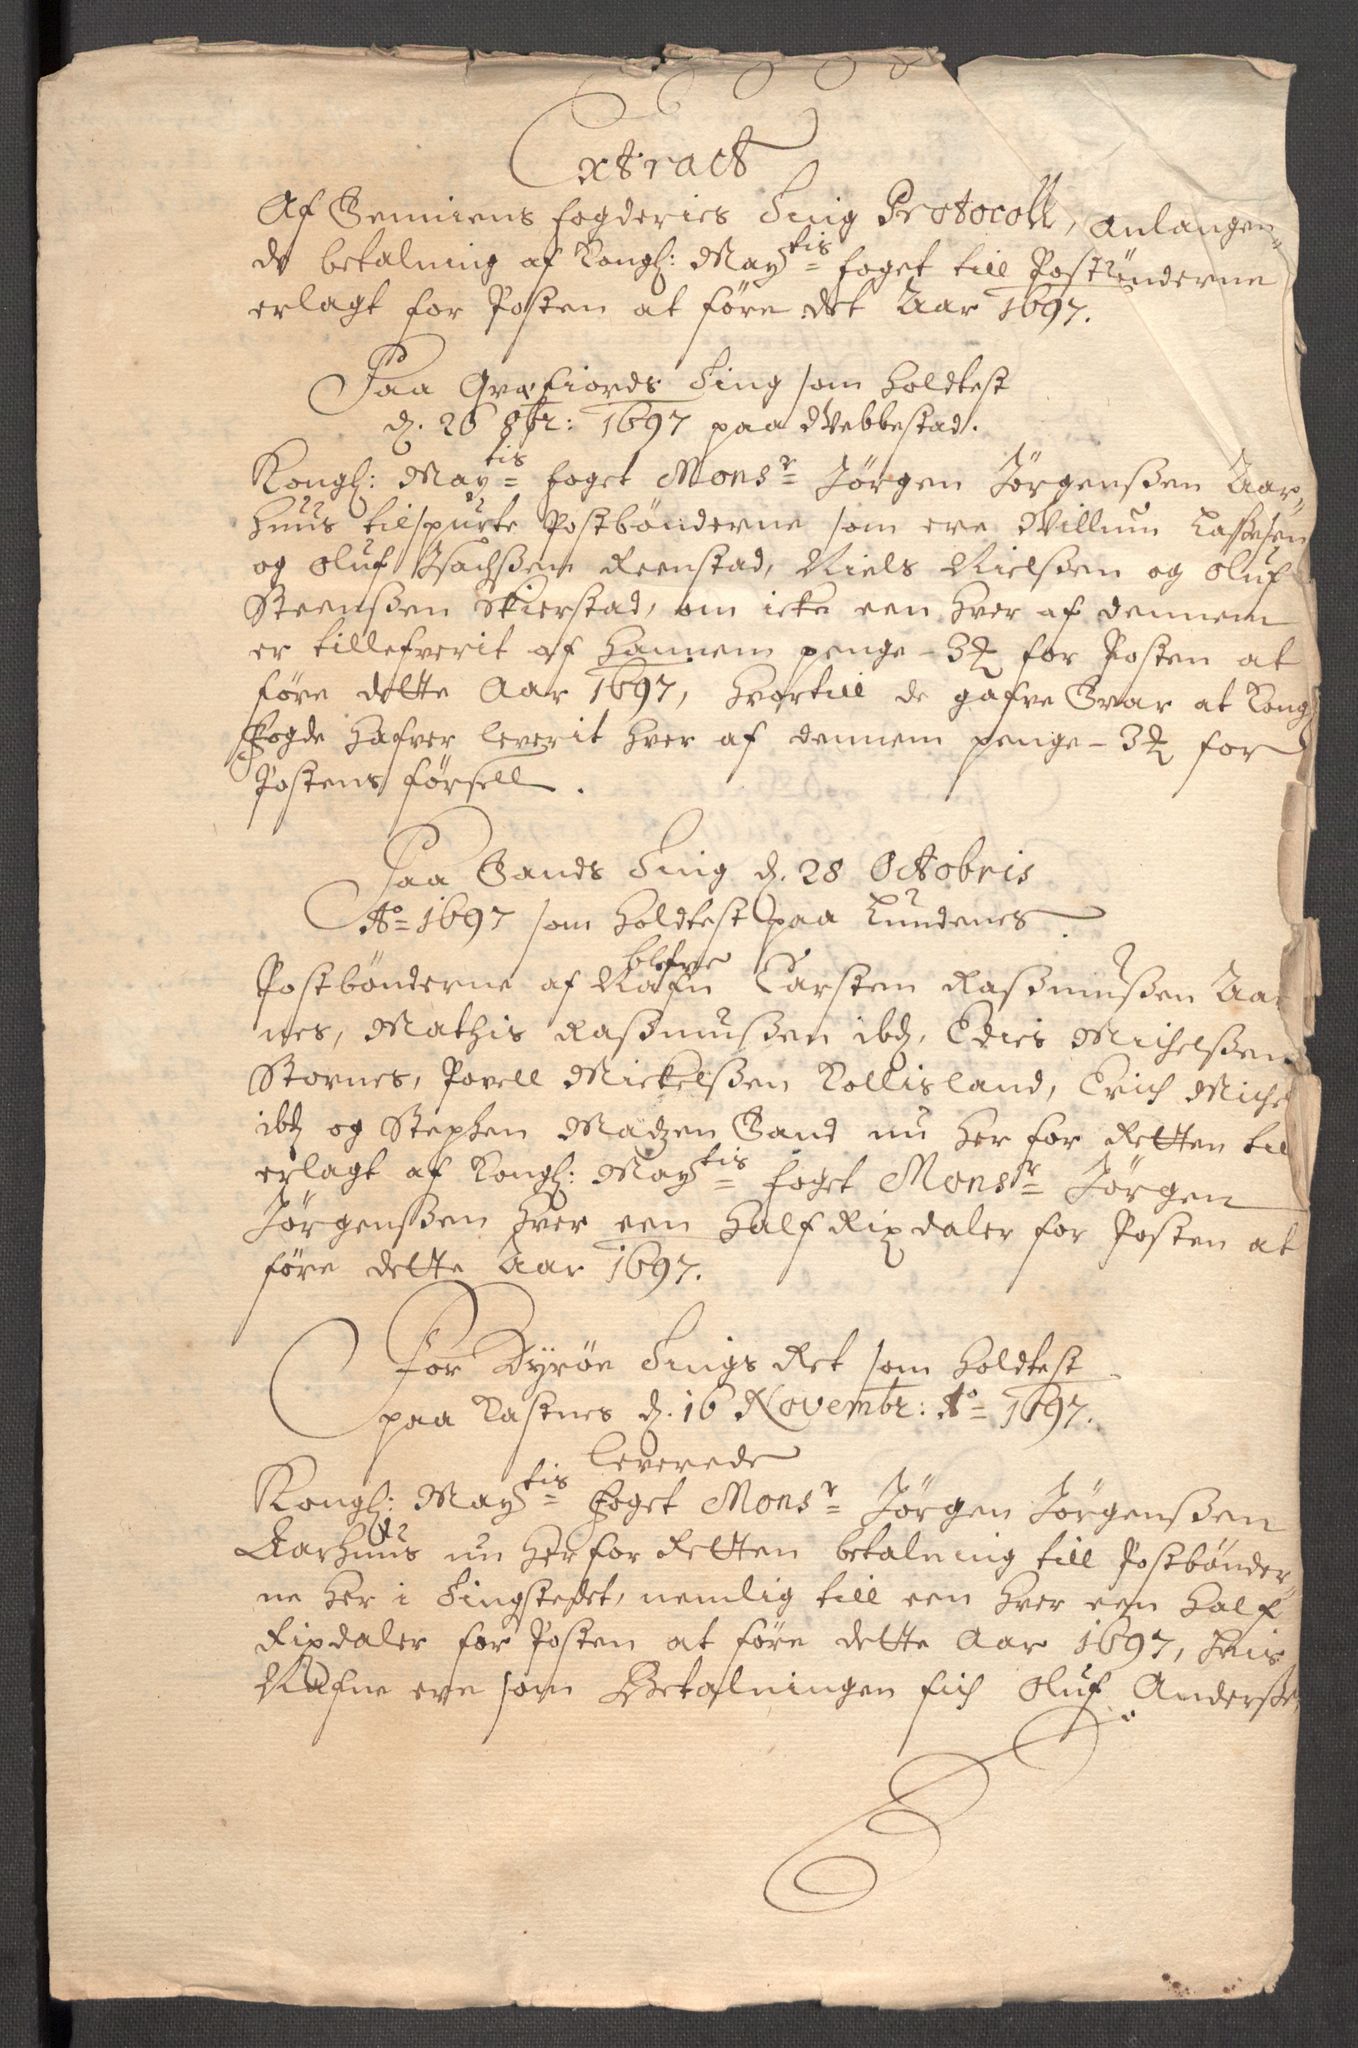 Extract
Af Senniens fogderies Ting Protocoll, anlangen-
de betalning af Kongl: May:tis foget till Postbönderne
erlagt for Posten at före det Aar 1697.
Paa Græfiords Ting som holdtest
d. 26 8br: 1697 paa Webbestad.
Kongl: May:tis foget Mons:r Jörgen Jörgenßen Aar-
huus tilspurte Postbönderne som ere Willum
og Oluf Isachßen Reenstad, Niels Nielßen og Oluf
Steenßen Skierstad, om icke een hver af dennem
er tillefverit af hannem penge - 3 for Posten at
före dette Aar 1697, hvortill de gafve Svar at Kongl
fogde hafver leverit hver af dennem penge - 3 for
Postens försell.
Paa Sands Ting d. 28 Octobris
Ao 1697 som holdtest paa Lundenes.
blefve
Postbönderne af Nafn Carsten Raßmußen Aar
nes, Mathis Raßmußen ibd, Edies Michelßen
Stornes, Povell Mickelßen Kollisland, Erich Michel
ibd og Stephen Madzen Sand nu her for Retten til
erlagt af Kongl: May:tis foget Mons:r Jörgen
Jörgenßen hver een half Rixdaler for Posten at
före dette Aar 1697.
For Dyröe Tings Ret som holdtest
paa Kastnes d. 16 Novembr: Ao 1697.
leverede
Kongl: May:tis foget Mons:r Jörgen Jörgenßen
Aarhuus nu her for Retten betalning till Postbönder-
ne her i Tingstedet, nemlig till een hver een half
Rixdaler for Posten at före dette Aar 1697, hvis
Nafne ere som Betalningen fich Oluf Anderße